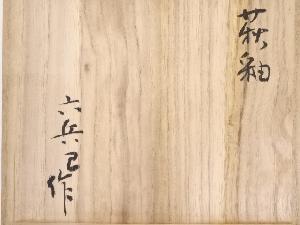 萩釉
六兵己作